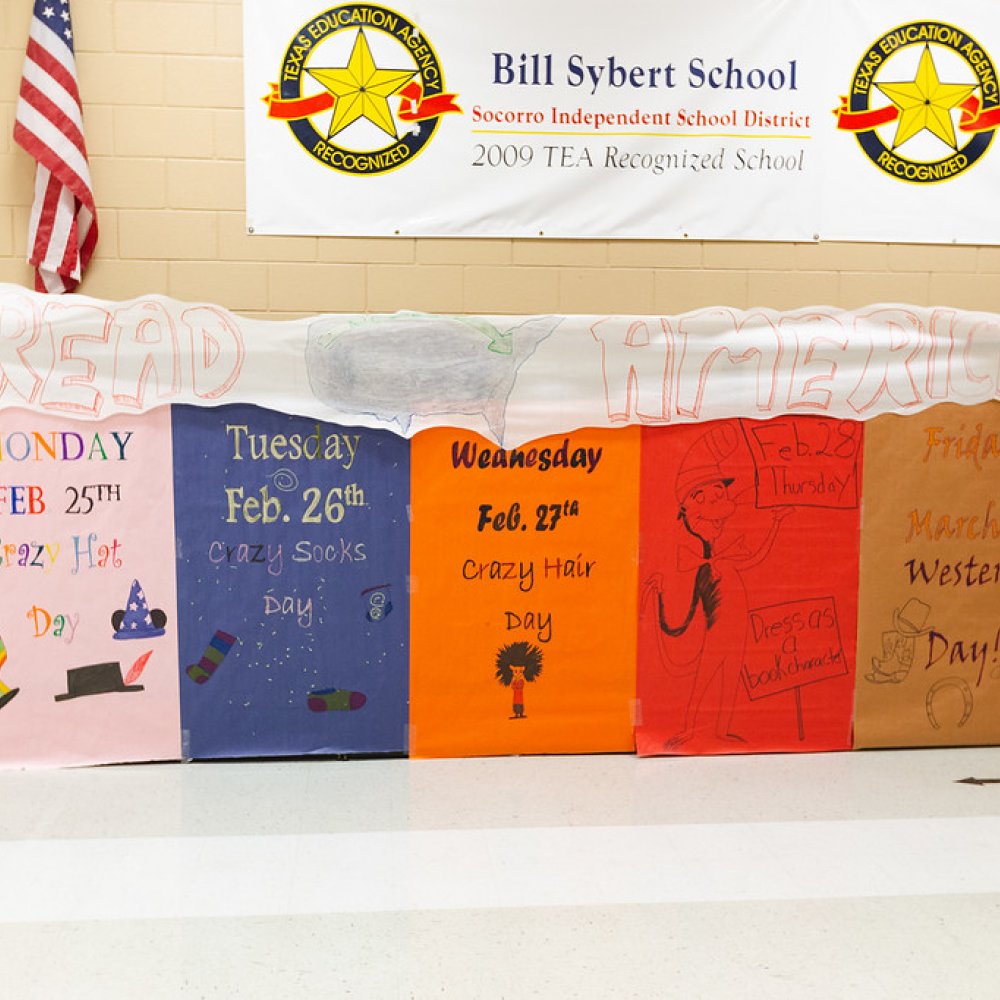 TEXAS EDUCATION AGENCY
RECOGNIZED
Bill Sybert School
Socorro Independent School District
2009 TEA Recognized School
TEXAS EDUCATION AGENCY
RECOGNIZED
READ AMERIC
MONDAY
FEB 25TH
Crazy Hat
Day
Tuesday
Feb. 26th
Crazy Socks
Day
Wednesday
Feb. 27th
Crazy Hair
Day
Feb. 28
Thursday
Dress as
a
book character
Frida
March
Wester
Day!